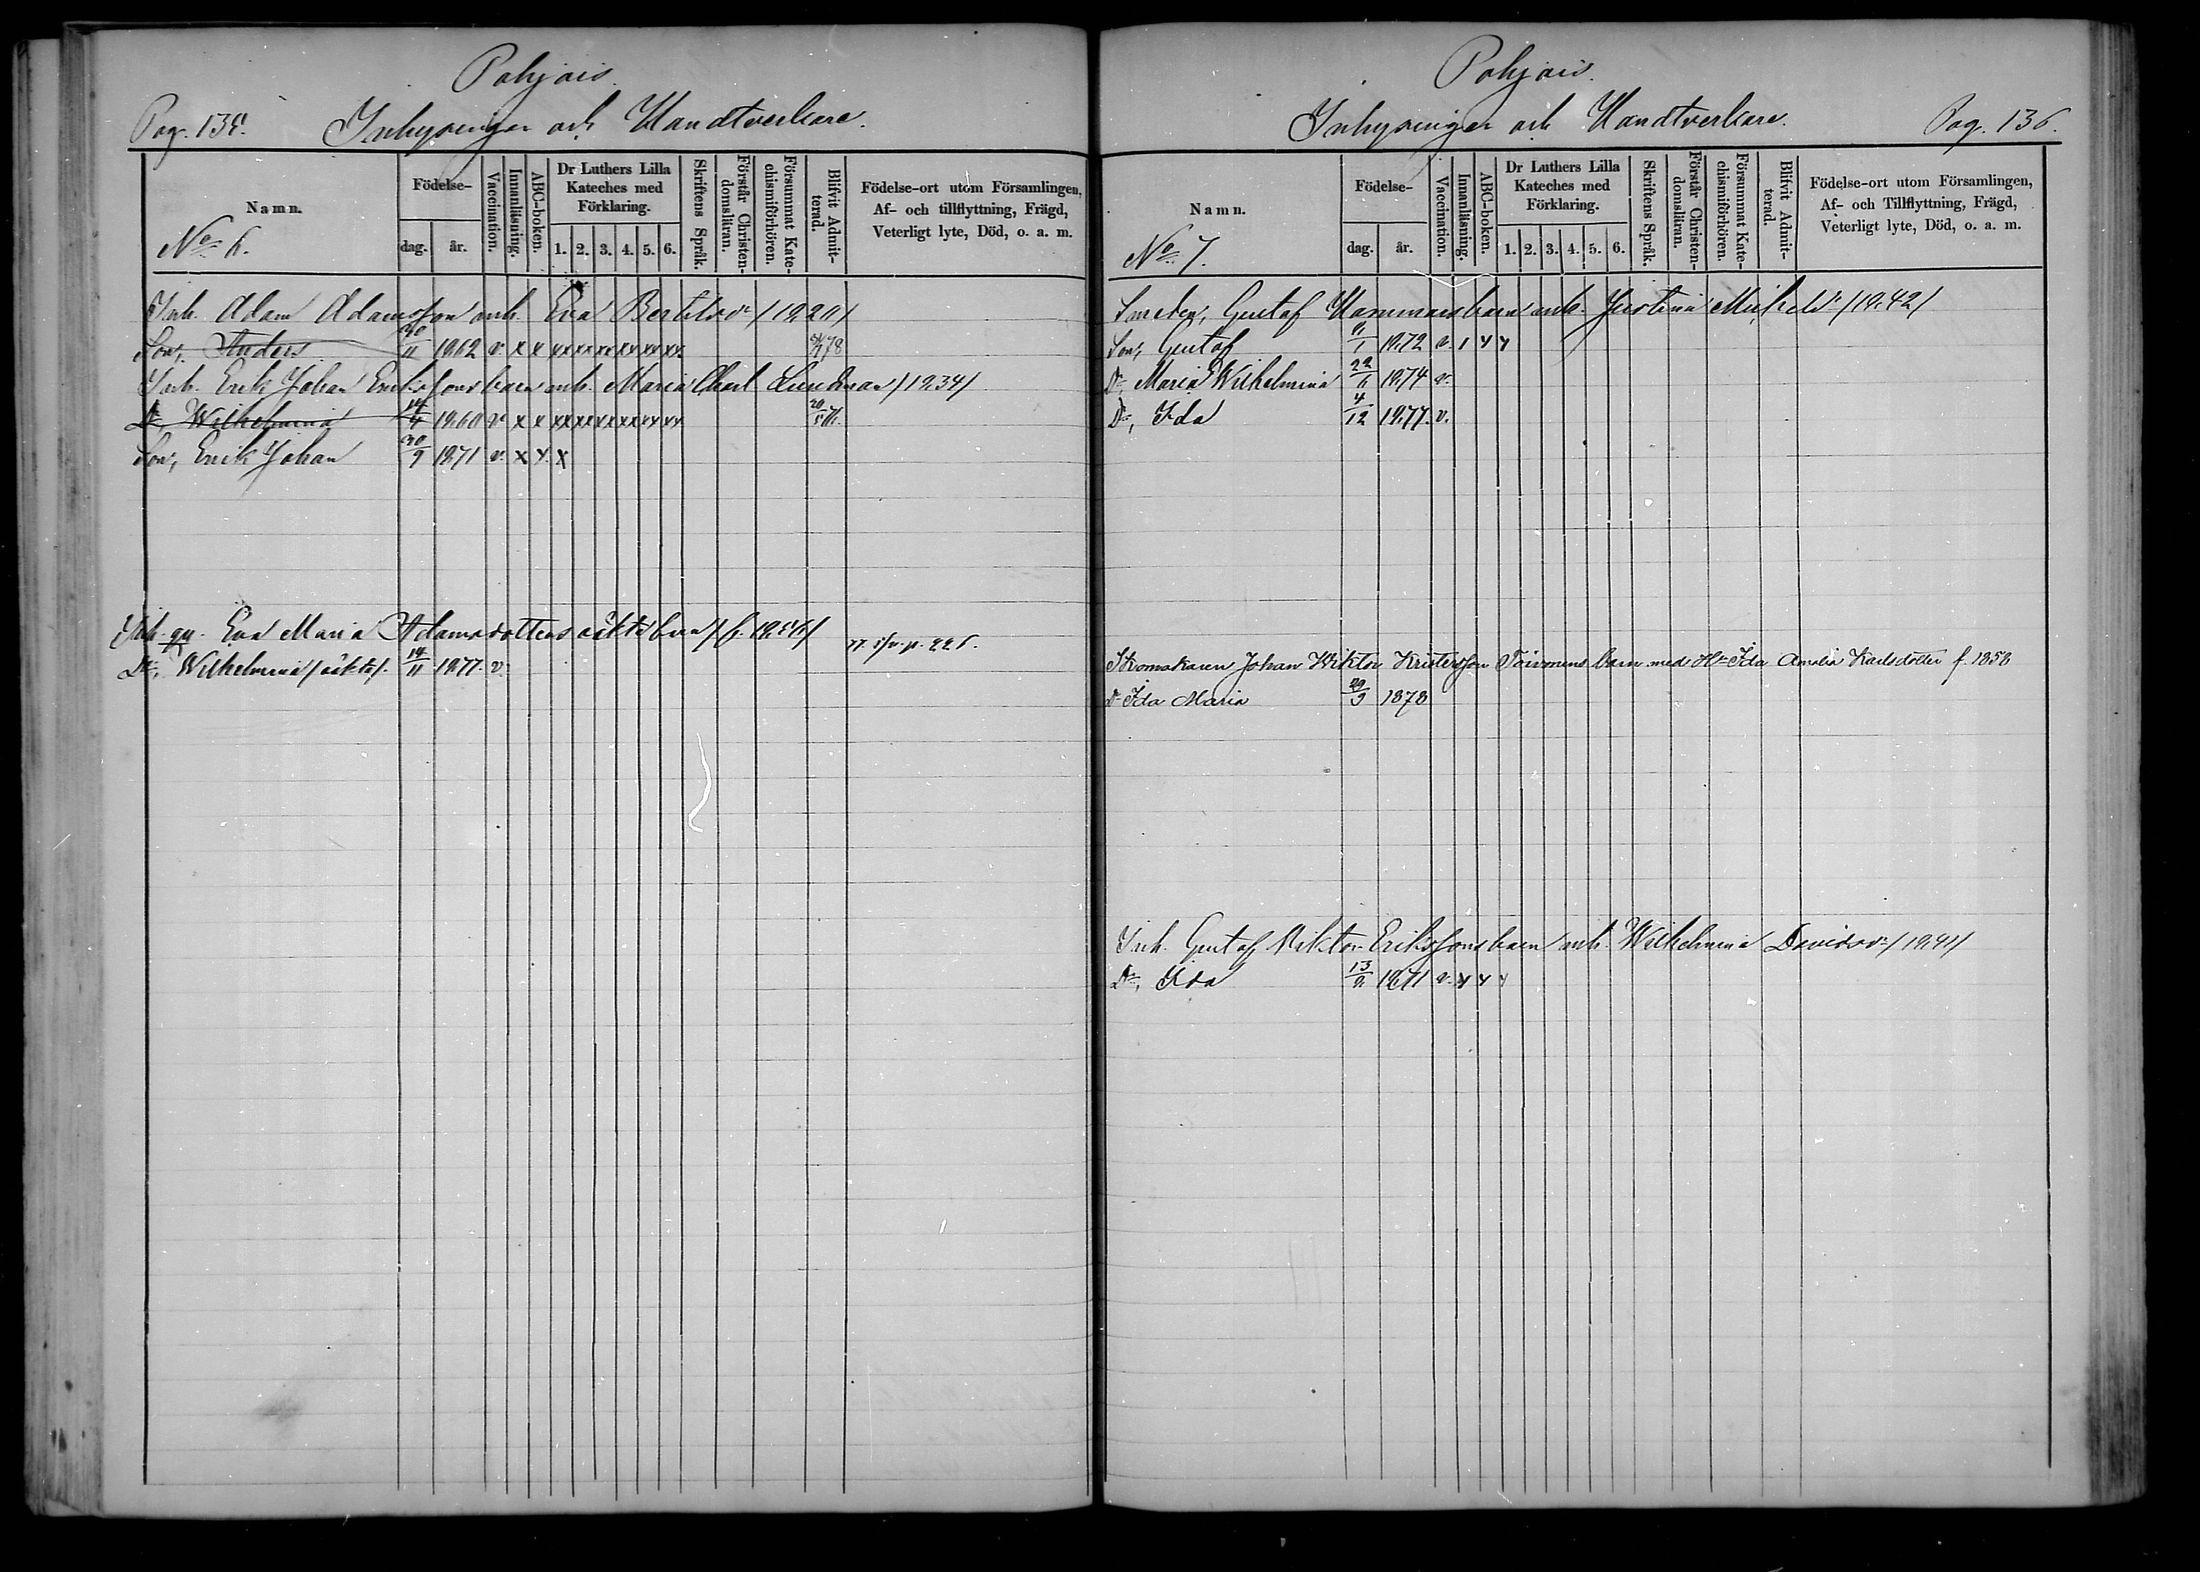 Pohjois.
Pag. 135. Inhysingar och Handtverkare.
Namn.
No 6.
Födelse-
dag. år.
Vaccination.
Innanläsning.
ABC-boken.
Dr Luthers Lilla
Kateches med
Förklaring.
1. 2. 3. 4. 5. 6.
Skriftens Språk.
Förstår Christen-
domsläran.
Försummat Kate-
chismiförhören.
Blifvit Admit-
terad.
Födelse-ort utom Församlingen,
Af- och tillflyttning, Frägd,
Veterligt lyte, Död, o. a. m.
Inh. Adam Adamsson enk. Eva Bertilsdr /1820/
Son, Anders 30/11 1862 v. x x xx xx xx xx xx xx 78
Inh. Erik Johan Erikssons barn enk. Maria Charl. Lundman /1834/
Dr, Wilhelmina 1860 v x x xx xx xx xx xx xx
Son, Erik Johan 30/9 1871 v. x x. x
Inh. qv. Eva Maria Adamsdotters oäkta barn
Dr, Wilhelmina /oäkta/. 14/11 1877. v.
Pohjois.
Inhysingar och Handtverkare. Pag. 136.
Namn.
No 7.
Födelse-
dag. år.
Vaccination.
Innanläsning.
ABC-boken.
Dr Luthers Lilla
Kateches med
Förklaring.
1. 2. 3. 4. 5. 6.
Skriftens Språk.
Förstår Christen-
domsläran.
Försummat Kate-
chismiförhören.
Blifvit Admit-
terad.
Födelse-ort utom Församlingen,
Af- och Tillflyttning, Frägd,
Veterligt lyte, Död, o. a. m.
Smeden, Gustaf Hammars barn enk. Justina Mickelsdr /1842/
Son, Gustaf 1872 v.
Dr, Maria Wilhelmina 22/6 1874 v.
Dr, Ida 4/12 1877. v.
Skomakaren Johan Wiktor Kristersson Toivonens barn med Hu Ida Amalia Karlsdotter f. 1858
Dr Ida Maria 29/9 1878
Inh. Gustaf Viktor Erikssons barn enk. Wilhelmina Davidsdr /1841/
Dr, Ida 1871 v. x x x